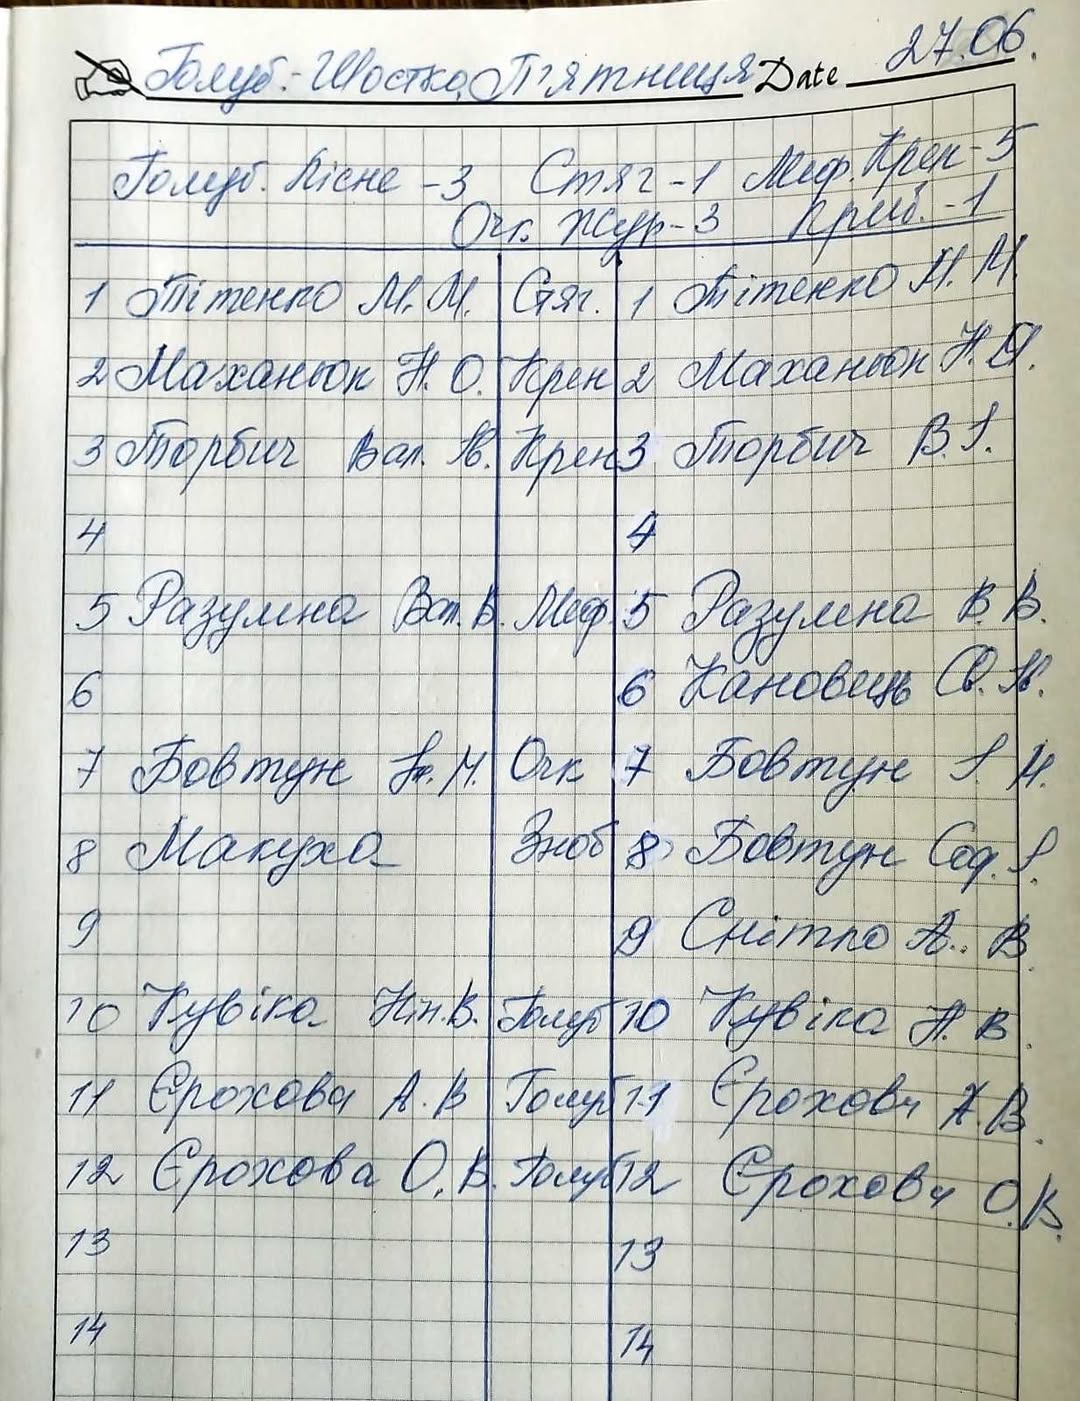 Голуб.- Шостка, П'ятниця Date 27.06.
Голуб. Лісне -3 Стяг -1 Меф. Крен -5
Очк. Жур -3 Приб. -1
1 Тітенко М. М. Стяг. 1 Тітенко М. М.
2 Маханьок Н. О. Крен 2 Маханьок Н. О.
3 Торбич Вал. Ів. Крен 3 Торбич В. І.
4 4
5 Разумна Вал. В. Меф. 5 Разумна В. В.
6 6 Кановець Св. Ів.
7 Бовтун Ін. М. Очк 7 Бовтун І. М.
8 Макуха Зноб 8 Бовтун Соф. І.
9 9 Снітко А. В.
10 Кувіка Нін. В. Голуб 10 Кувіка Н. В.
11 Єрохова А. В Голуб 11 Єрохова А. В.
12 Єрохова О. В. Голуб 12 Єрохова О. В.
13 13
14 14